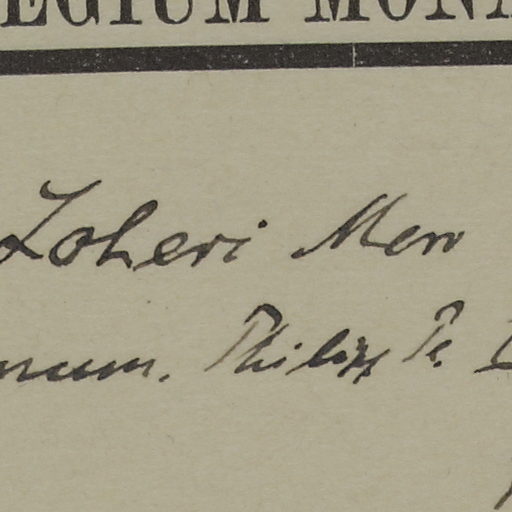 EGIUM MONA
Loheri Merr
num. Philipp. Pl.